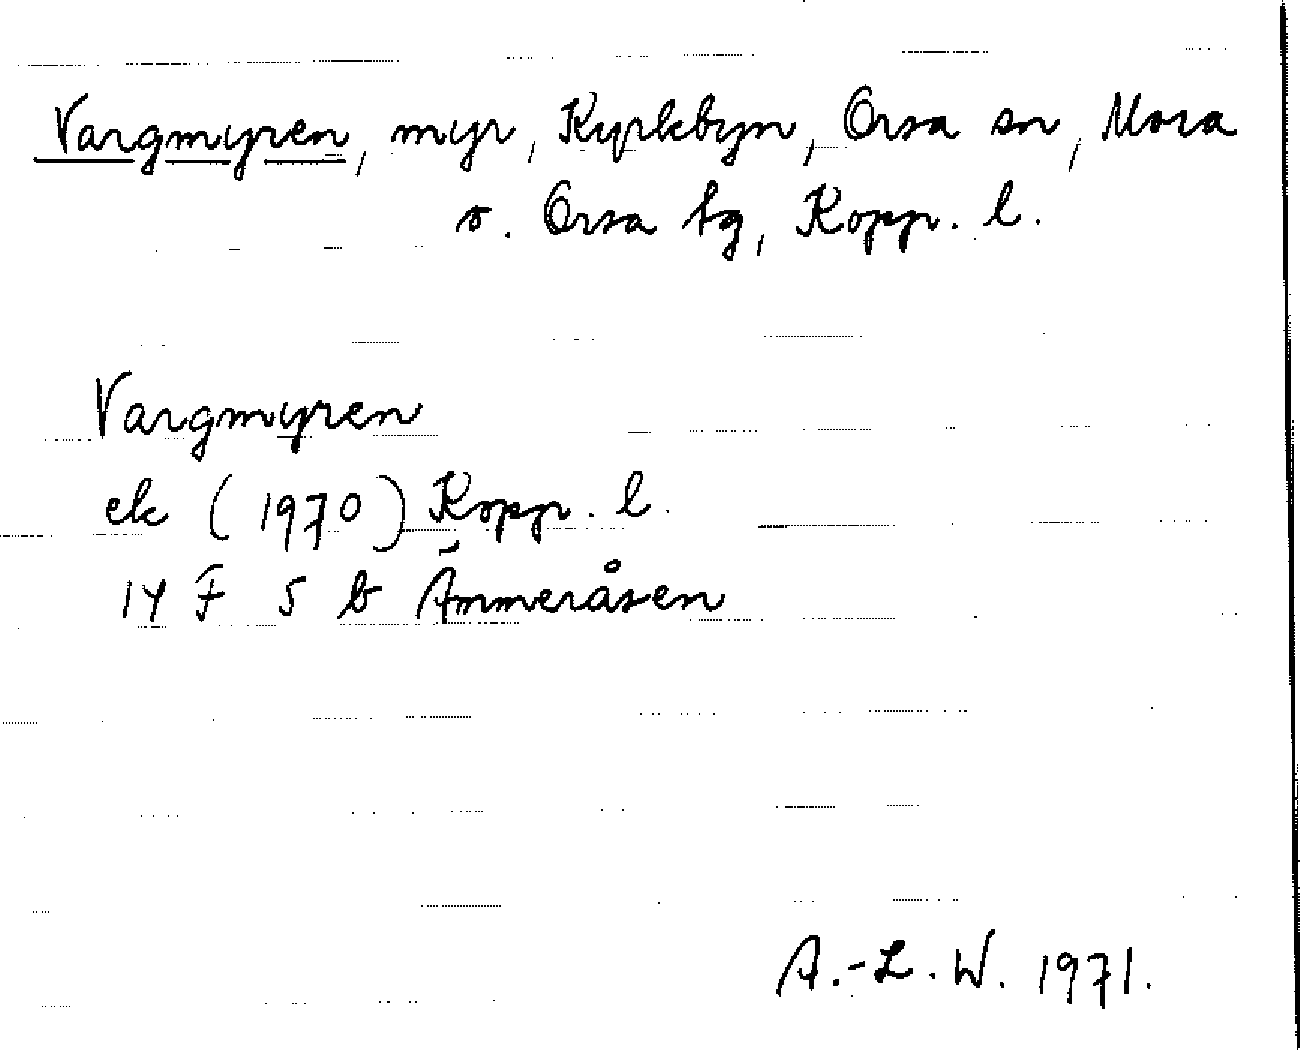 Vargmyren, myr, Kyrkbyn, Orsa sn, Mora
o. Orsa tg, Kopp. l.
Vargmyren
ek (1970) Kopp. l.
14 F 5 b Ämmeråsen
A.-L. W. 1971.